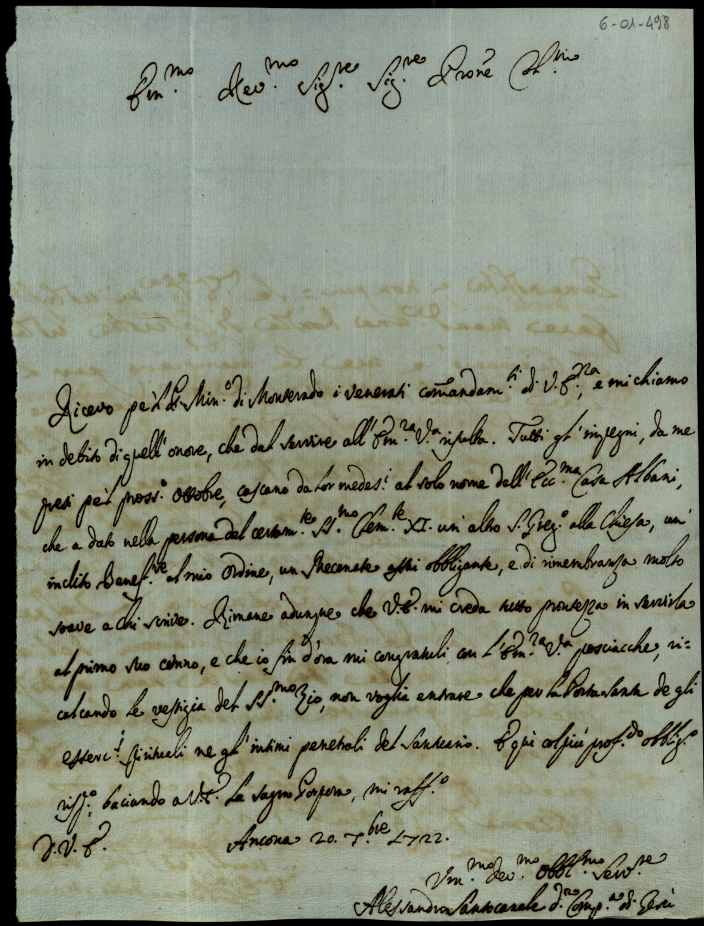 6-01-498
Em.mo Rev.mo Sig.re Sig.re Prone
Ricevo pe'l P. Min.o di Monserado i venerati comandam.ti di V. E.za, e mi chiamo
in debito di quell'onore, che dal servire all'Em.za V.a risulta. Tutti gl'impegni, da me
presi pe'l pross.o Ottobre, cascano da lor medes.i al solo nome dell'Ecc.ma Casa Albani,
che a dato nella persona del SS.mo Clem.te XI. un'altro S. Greg.o alla Chiesa, un'
inclito Benef.re al mio Ordine, un Mecenate assai obbligante, e di rimembranza molto
soave a chi scrive. Rimane adunque che V. E. mi creda tutto prontezza in servirla
al primo suo cenno, e che io fin d'ora mi congratuli con l'Em.za V.a posciacche, ri=
calcando le vestigia del SS.mo Zio, non voglia entrare che per la Porta Santa de gli
esserc.i spirituali ne gl'intimi penetrali del Santuario. E qui col più prof.do obblig.o
risp.o, baciando a V. E. la sagra Porpora, mi raff.o
D. V. E.
Ancona 20. 7.bre 1722.
Um.mo Dev.mo Obbl.mo Serv.re
Alessandro Santocanale d.a Comp.a di Gesù